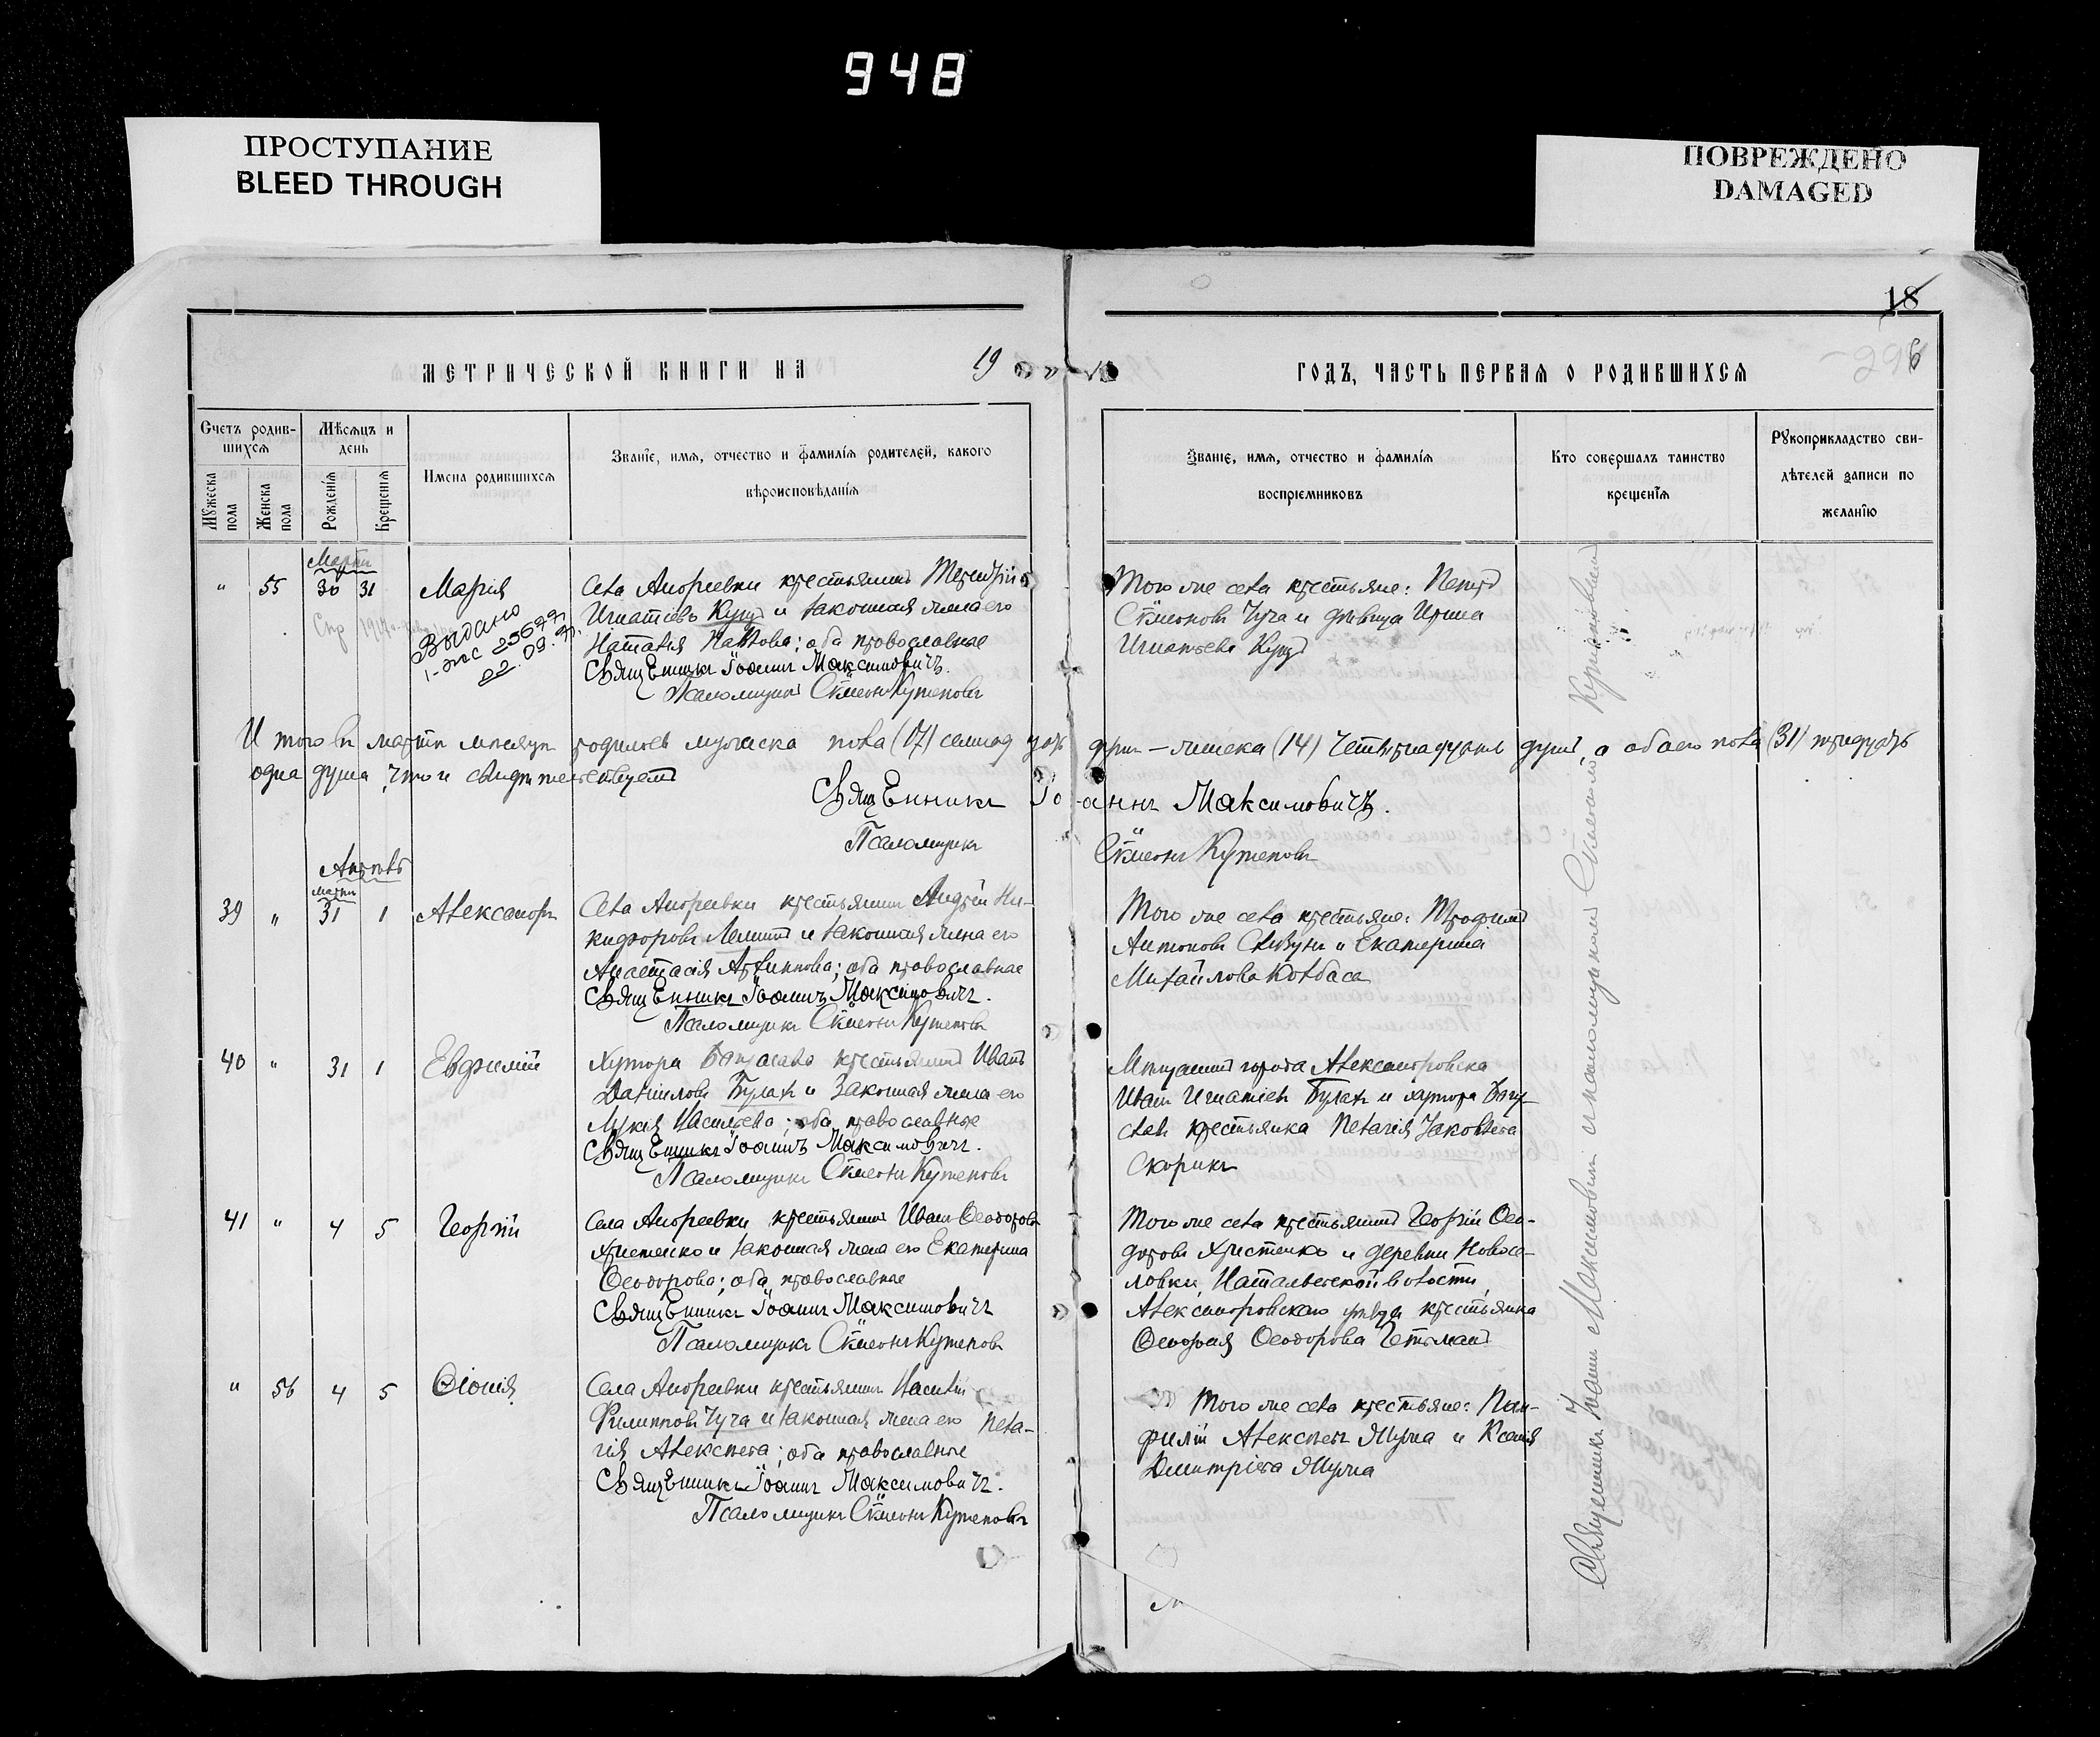 948
ПРОСТУПАНИЕ
BLEED THROUGH
ПОВРЕЖДЕНО
DAMAGED
18
296
МЕТРИЧЕСКОЙ КНИГИ НА 19
ГОДЪ, ЧАСТЬ ПЕРВАЯ О РОДИВШИХСЯ
Счетъ родив-
шихся
Мѣсяцъ и
день
Мужеска пола
Женска пола
Рожденія
Крещенія
Имена родившихся
Званіе, имя, отчество и фамилія родителей, какого
вѣроисповѣданія
Званіе, имя, отчество и фамилія
воспріемниковъ
Кто совершалъ таинство
крещенія
Рукоприкладство сви-
дѣтелей записи по
желанію
Мартъ
" 55 30 31 Марія
Выдано
22.09.
Села Андреевки крестьянинъ
Игнатіевъ Куцъ и законная жена его
Наталія Павлова; оба православные
Священникъ Іоаннъ Максимовичъ.
Псаломщикъ Сѵмеонъ Кутеповъ
Того же села крестьяне: Петръ
Сѵмеоновъ Чуча и дѣвица Ирина
Игнатьева Куцъ
Итого въ мартѣ мѣсяцѣ родилось мужеска пола (17) семнадцать душъ – женска (14) четырнадцать душъ, а обоего пола (31) тридцать
одна душа, что и свидѣтельствуемъ
Священникъ Іоаннъ Максимовичъ.
Псаломщикъ Сѵмеонъ Кутеповъ
Апрѣль
Мартъ
39 " 31 1 Александръ
Села Андреевки крестьянинъ Андрей Ни-
кифоровъ и законная жена его
Анастасія Архиппова; оба православные
Священникъ Іоаннъ Максимовичъ.
Псаломщикъ Сѵмеонъ Кутеповъ
Того же села крестьяне: Трофимъ
Антоновъ и Екатерина
Михайлова Ковбаса
40 " 31 1 Евфимій
Хутора Богуслава крестьянинъ Иванъ
Даніиловъ Булахъ и законная жена его
Лукія Васильева; оба православные
Священникъ Іоаннъ Максимовичъ.
Псаломщикъ Сѵмеонъ Кутеповъ
Мѣщанинъ города Александровска
Иванъ Игнатіевъ Булахъ и хутора Богу-
слава крестьянка Пелагія Іаковлева
Скорикъ
41 " 4 5 Георгій
Села Андреевки крестьянинъ Иванъ Ѳеодоровъ
Христенко и законная жена его Екатерина
Ѳеодорова; оба православные
Священникъ Іоаннъ Максимовичъ
Псаломщикъ Сѵмеонъ Кутеповъ
Того же села крестьянинъ Георгій Ѳео-
доровъ Христенко и деревни Новосе-
ловки, Натальевской волости,
Александровскаго уѣзда крестьянка
Ѳеодорова Гетьманъ
" 56 4 5 Ѳіонія
Села Андреевки крестьянинъ Василій
Филипповъ Чуча и законная жена его Пела-
гія Алексѣева; оба православные
Священникъ Іоаннъ Максимовичъ.
Псаломщикъ Сѵмеонъ Кутеповъ
Того же села крестьяне: Пам-
филій Алексѣевъ и Ксенія
Димитріева
Священникъ Іоаннъ Максимовичъ съ псаломщикомъ Сѵмеономъ Кутеповымъ